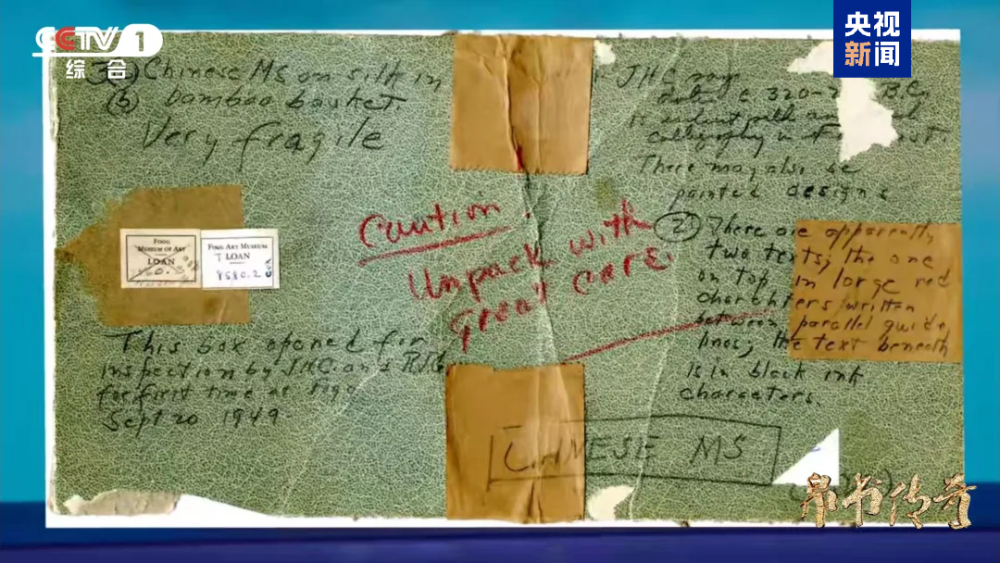 CCTV 1
综合
央视
新闻
Chinese MS on silk in
(b) bamboo basket
Very fragile
JHC
c 320-
B.C.
calligraphy
There may also be
painted designs
(2) There are apparently
two texts; the one
on top, in large red
characters written
between parallel guide
lines; the text beneath
is in black ink
characters.
Caution.
Unpack with
great care.
FOGG
MUSEUM OF ART
LOAN
FOGG ART MUSEUM
T LOAN
8580.2
This box opened for
inspection by JHC and
for first time at
Sept 20 1949
CHINESE MS
帛书传奇